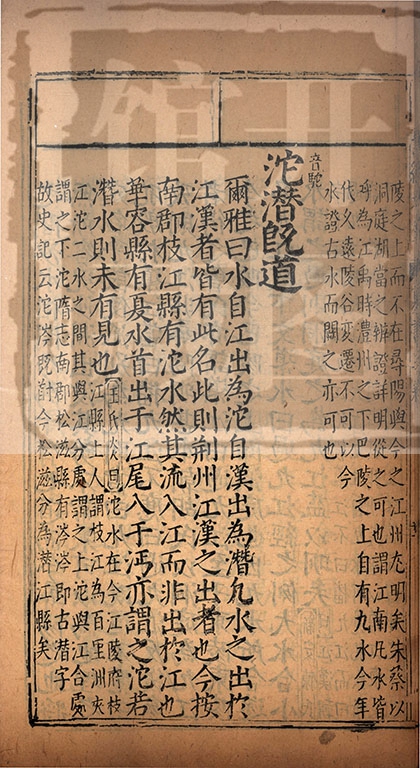 陵之上而不在尋陽與今之江州尤明矣朱蔡以
洞庭湖當之辨證詳明從之可也謂江南凡水皆
呼為江禹時澧州之下巴陵之上自有九水今年
代久遠陵谷變遷不可以今
水證古水而闕之亦可也
沱潛旣道
音駝
爾雅曰水自江出為沱自漢出為潛凡水之出於
江漢者皆有此名此則荆州江漢之出者也今按
南郡枝江縣有沱水然其流入江而非出於江也
華容縣有夏水首出于江尾入于沔亦謂之沱若
潛水則未有見也
王氏炎曰沱水在今江陵府枝
江縣土人謂枝江為百里洲夾
江沱二水之間其與江分處謂之上沱與江合處
謂之下沱隋志南郡松滋縣有涔涔即古潛字
故史記云沱涔旣道今松滋分為潛江縣矣